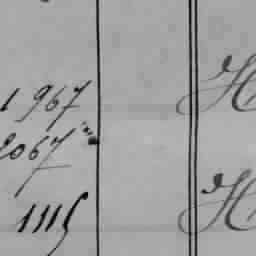 1 967 H
2067
1115 H